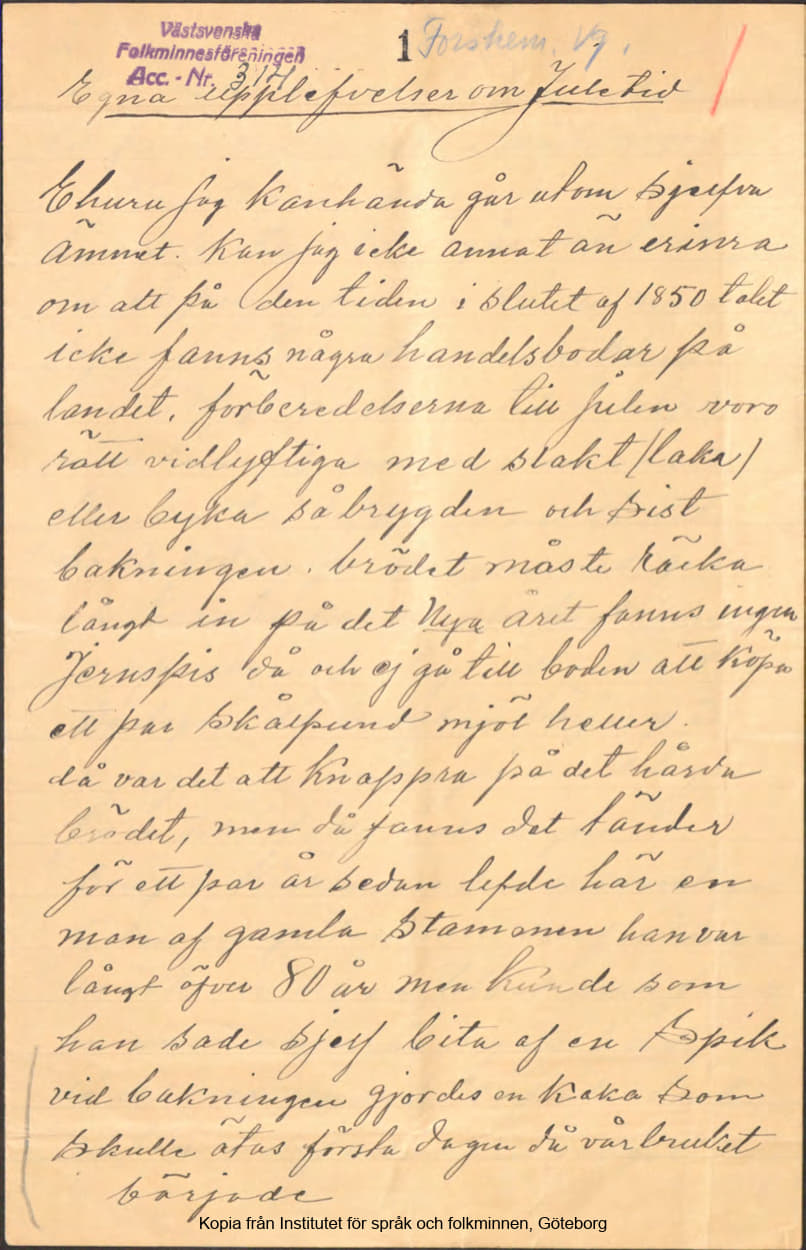 Västsvenska
Folkminnesföreningen
Acc. - Nr. 314
1 Forshem. Vg.
Egna upplefvelser om Juletid
Ehuru jag kanhända går utom sjelfva
ämnet. kan jag icke annat än erinra
om att på den tiden i slutet af 1850 talet
icke fanns några handelsbodar på
landet. förberedelserna till Julen voro
rätt vidlyftiga med slakt (laka)
eller byka så brygden och sist
bakningen. brödet måste räcka
långt in på det Nya året fanns ingen
Jernspis då och ej gå till boden att köpa
ett par skålpund mjöl heller.
då var det att knappra på det hårda
brödet, men då fanns det tänder
för ett par år sedan lefde här en
man af gamla stammen han var
långt öfver 80 år men kunde som
han sade sjelf bita af en Spik
vid bakningen gjordes en kaka som
skulle ätas första dagen då vårbruket
började
Kopia från Institutet för språk och folkminnen, Göteborg